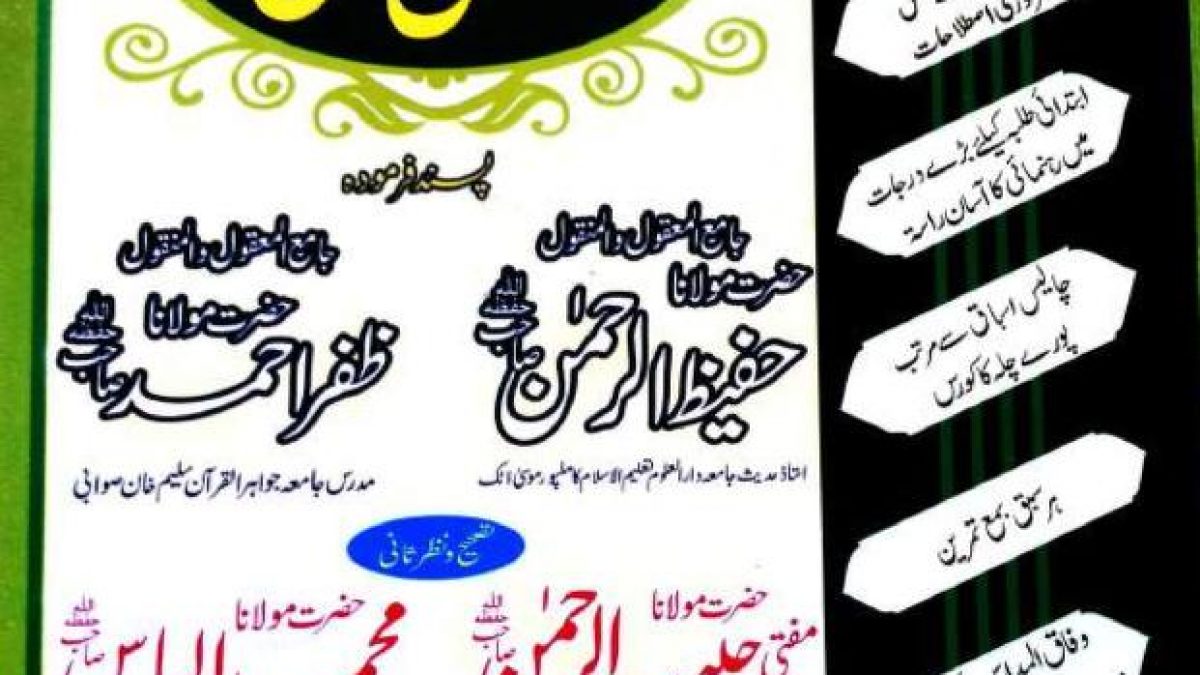 پسند فرمودہ
جامع المعقول والمنقول
حضرت مولانا
حفیظ الرحمٰن صاحب حفظہ اللہ
استاذ حدیث جامعہ دار العلوم تعلیم الاسلام کاملپور موسیٰ اٹک
جامع المعقول والمنقول
حضرت مولانا
ظفر احمد صاحب حفظہ اللہ
مدرس جامعہ جواہر القرآن سلیم خان صوابی
تصحیح و نظر ثانی
حضرت مولانا
مفتی الرحمٰن صاحب حفظہ اللہ
حضرت مولانا
محمد الیاس صاحب حفظہ اللہ
ضروری اصطلاحات
ابتدائی طلبہ کیلئے بڑے درجات
میں رہنمائی کا آسان راستہ
چالیس اسباق سے مرتب
پورے چلہ کا کورس
ہر سبق بمع تمرین
وفاق المدارس